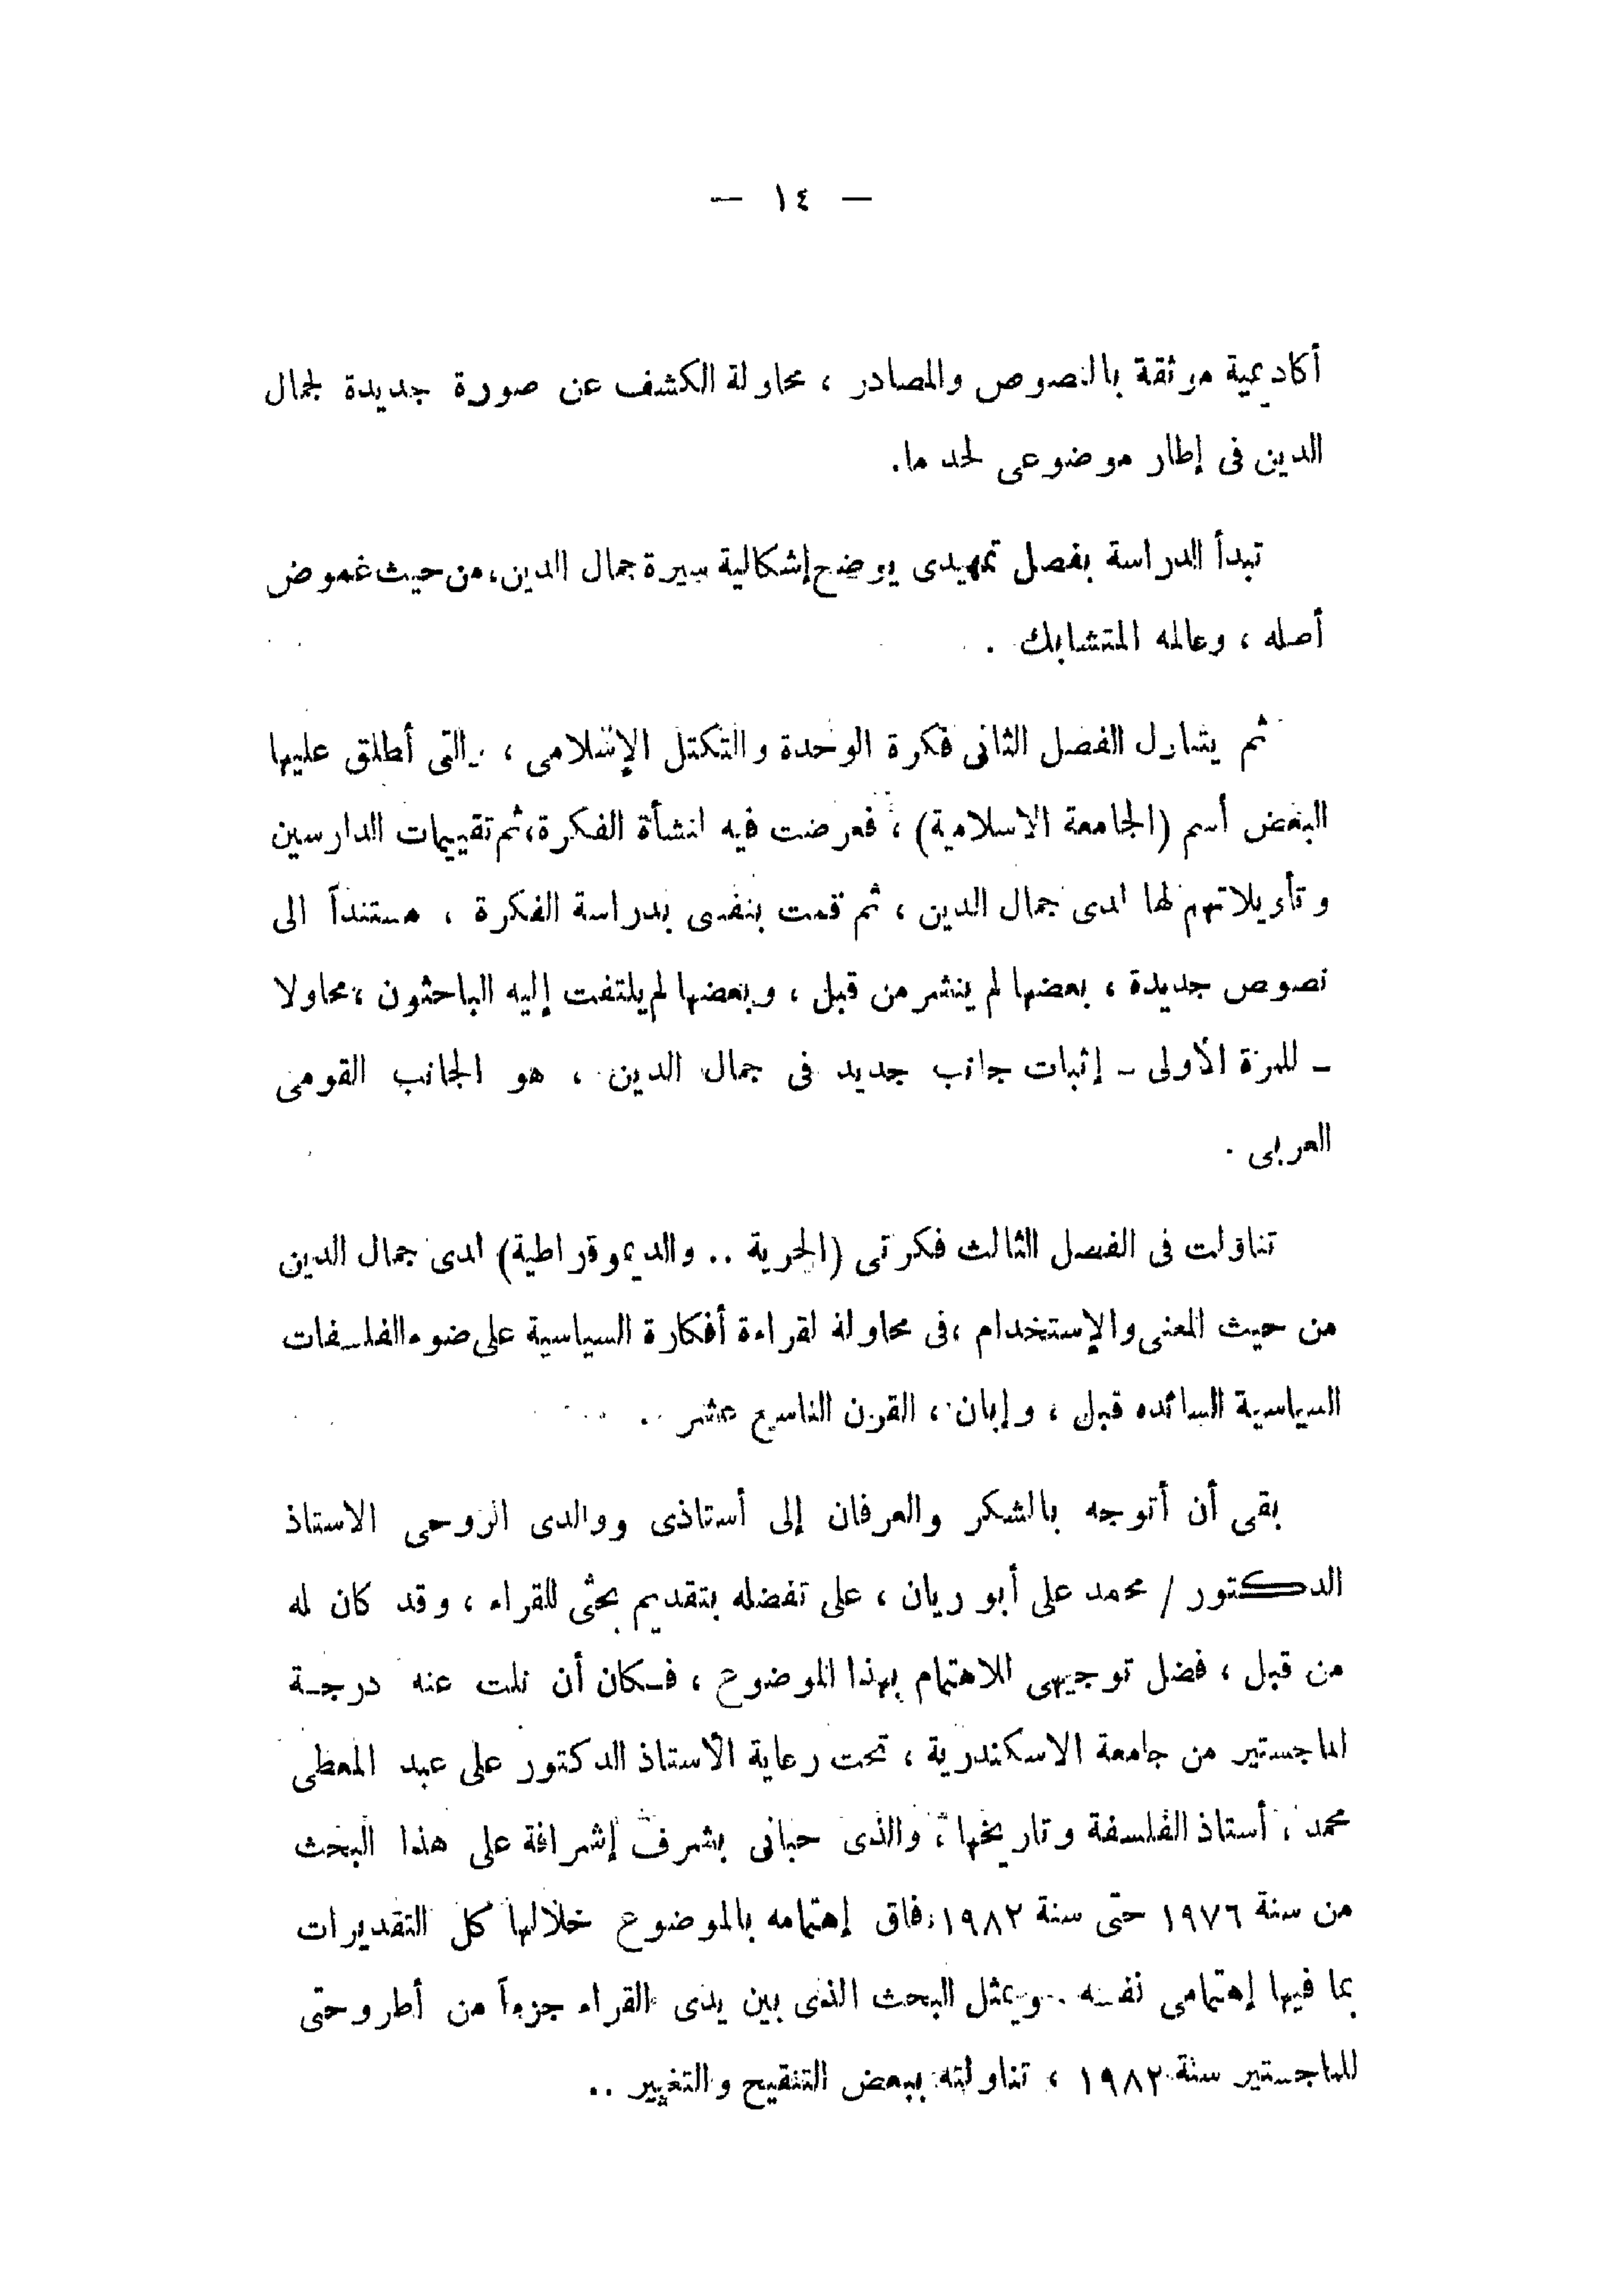 — ١٤ —
أكاديمية موثقة بالنصوص والمصادر ، محاولة الكشف عن صورة جديدة لجمال
الدين فى إطار موضوعى لحد ما.
تبدأ الدراسة بفصل تمهيدى يوضح إشكالية سيرة جمال الدين، من حيث غموض
أصله ، وعالمه المتشابك .
ثم يتناول الفصل الثانى فكرة الوحدة والتكتل الإسلامى ، والتى أطلق عليها
البعض أسم (الجامعة الاسلامية) ، فعرضت فيه لنشأة الفكرة، ثم تقييمات الدارسين
وتأويلاتهم لها لدى جمال الدين ، ثم قمت بنفسى بدراسة الفكرة ، مستنداً الى
نصوص جديدة ، بعضها لم ينشر من قبل ، وبعضها لم يلتفت إليه الباحثون ، محاولا
ـ للمرة الأولى ـ إثبات جانب جديد فى جمال الدين ، هو الجانب القومى
العربى .
تناولت فى الفصل الثالث فكرتى (الحرية .. والديموقراطية) لدى جمال الدين
من حيث المعنى والإستخدام ، فى محاولة لقراءة أفكارة السياسية على ضوء الفلسفات
السياسية السائده قبل ، وإبان ، القرن التاسع عشر .
بقى أن أتوجه بالشكر والعرفان إلى أستاذى ووالدى الروحى الاستاذ
الدكتور / محمد على أبو ريان ، على تفضله بتقديم بحثى للقراء ، وقد كان له
من قبل ، فضل توجيهى للاهتمام بهذا الموضوع ، فكان أن نلت عنه درجة
الماجستير من جامعة الاسكندرية ، تحت رعاية الأستاذ الدكتور على عبد المعطى
محمد ، أستاذ الفلسفة وتاريخها ، والذى حبانى بشرف إشرافة على هذا البحث
من سنة ١٩٧٦ حتى سنة ١٩٨٢، فاق إهتمامه بالموضوع خلالها كل التقديرات
بما فيها إهتمامى نفسه .. ويمثل البحث الذى بين يدى القراء جزءاً من أطروحتى
للماجستير سنة ١٩٨٢ ، تناولته ببعض التنقيح والتغيير ..